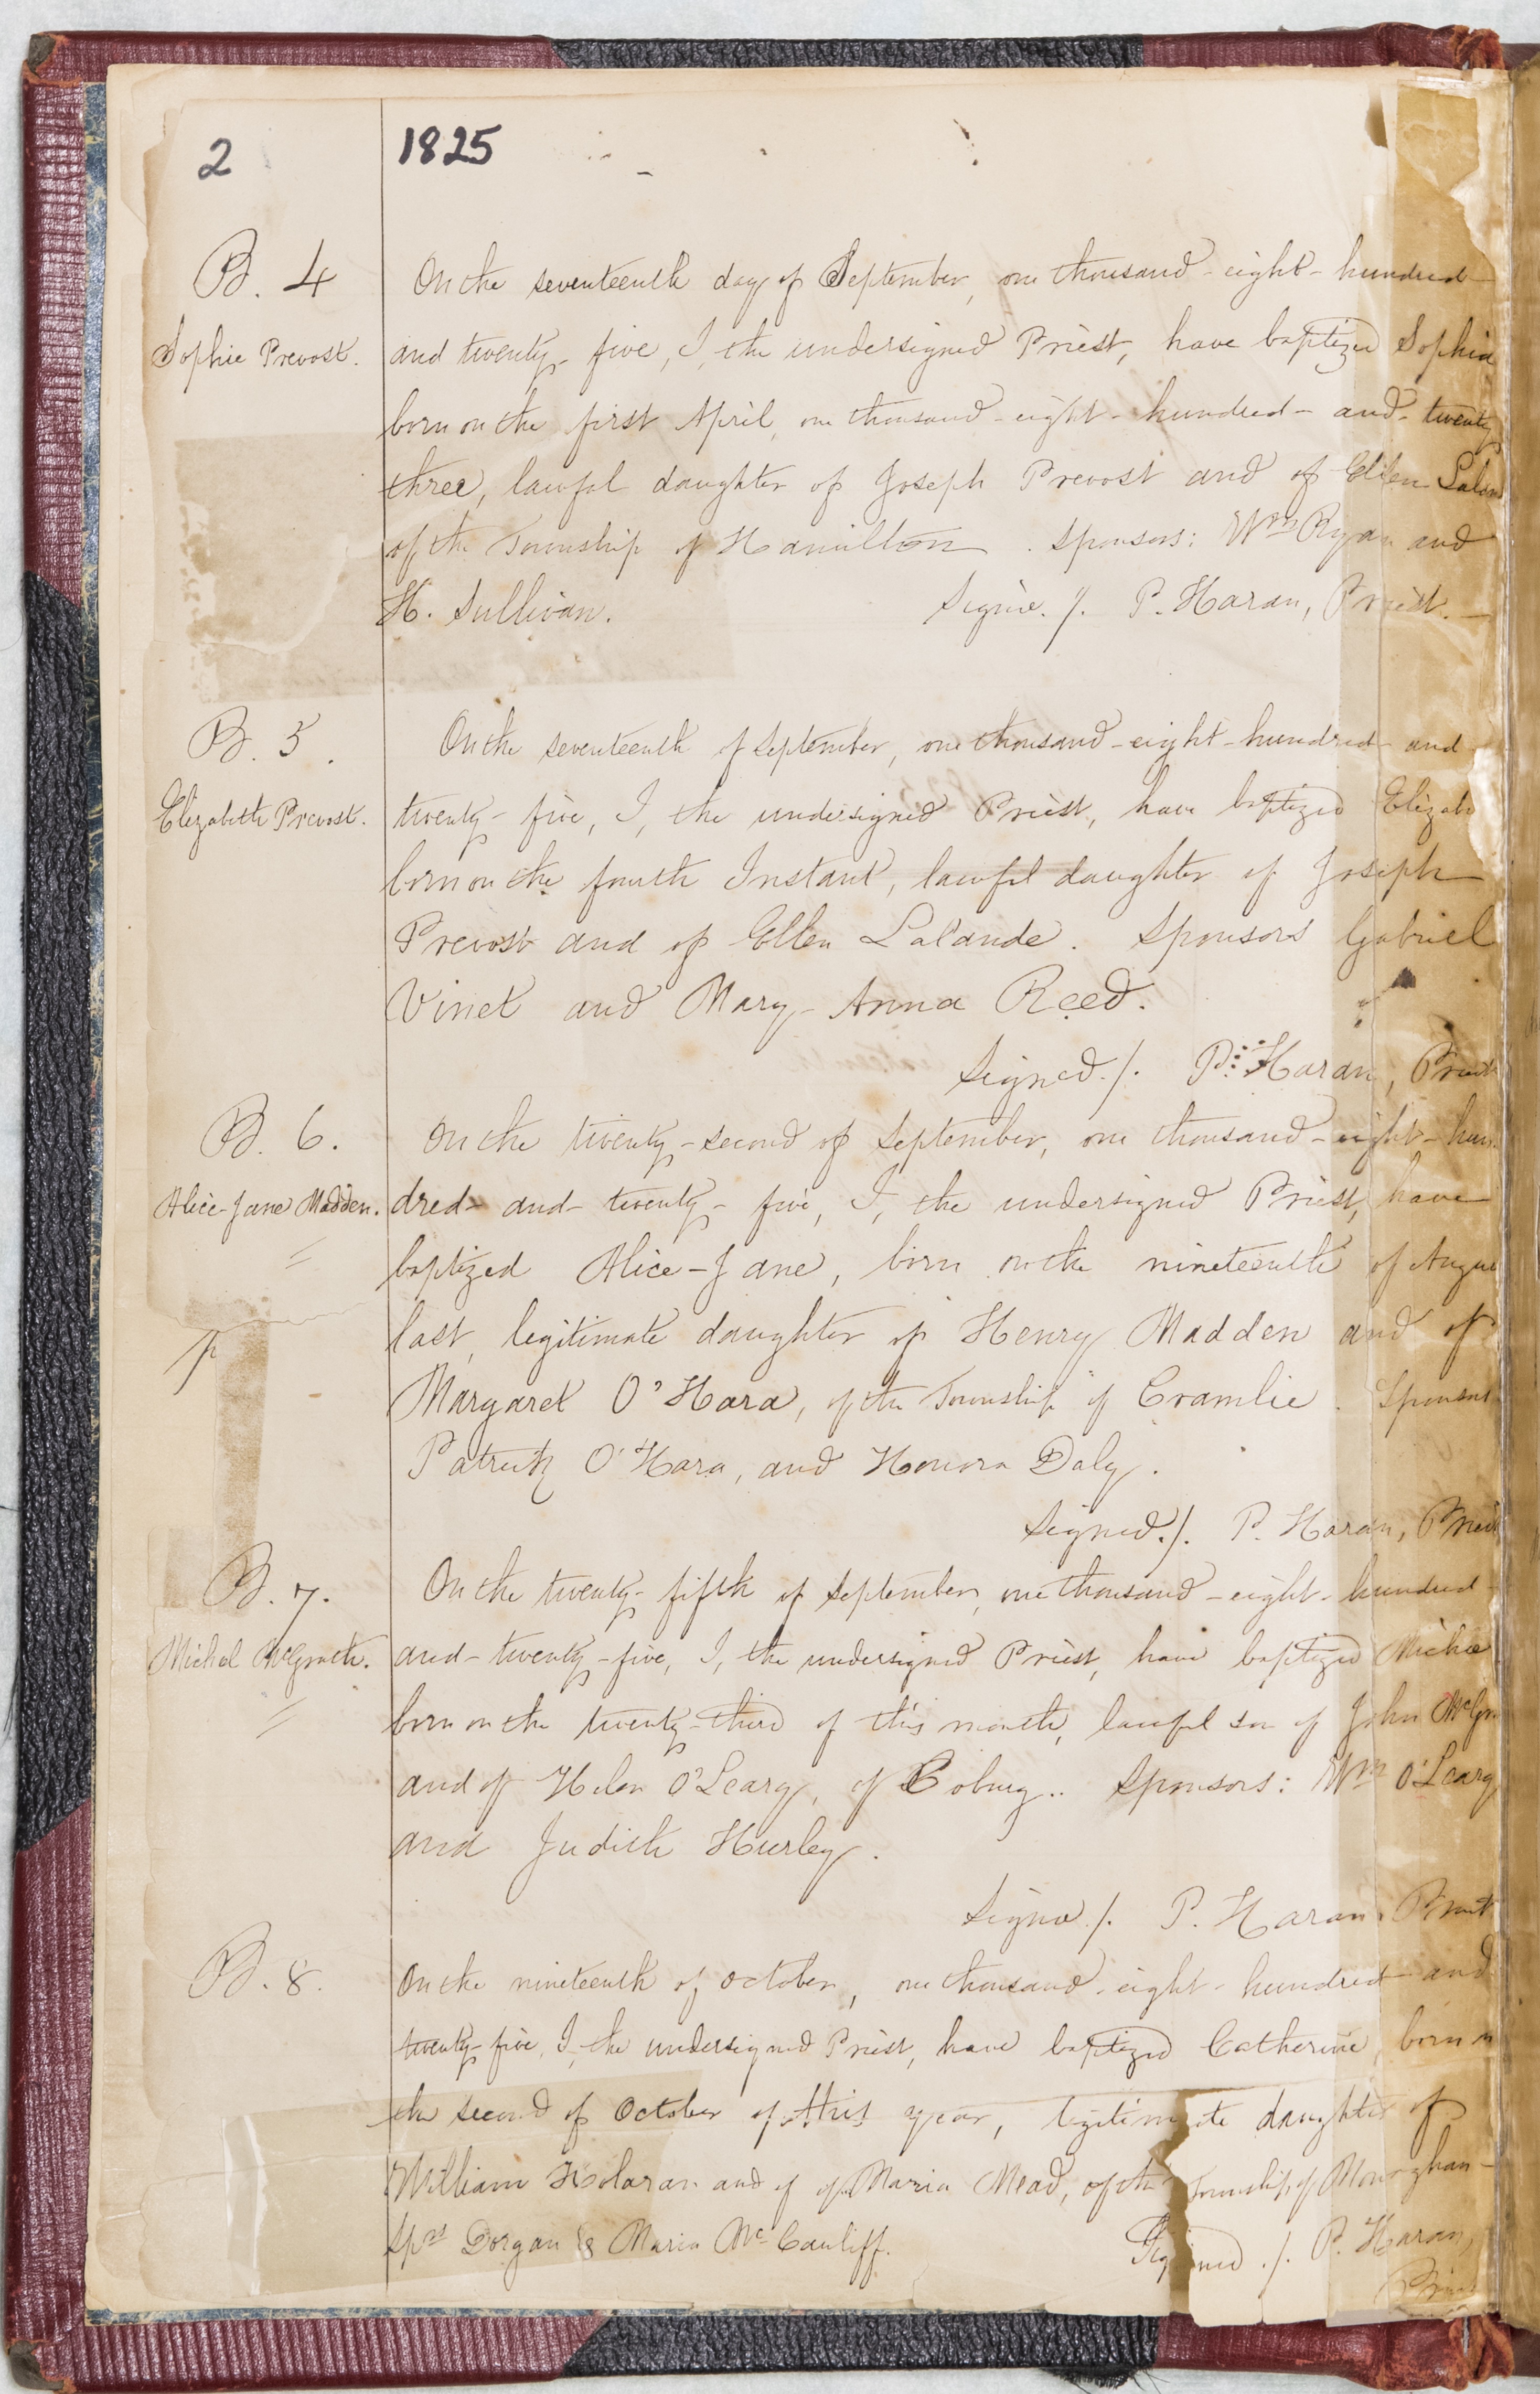 2
1825
B. 4
Sophie Prevost.
On the seventeenth day of September, one thousand-eight-hundred
and twenty-five, I, the undersigned Priest, have baptized Sophia
born on the first April, one thousand-eight-hundred-and-twenty
three, lawful daughter of Joseph Prevost and of Ellen
of the Township of Hamilton. Sponsors: Wm Ryan and
H. Sullivan. Signed./. P. Haran, Priest.
B. 5.
Elizabeth Prevost.
On the seventeenth of September, one thousand-eight-hundred and
twenty-five, I, the undersigned Priest, have baptized Elizab
born on the fourth Instant, lawful daughter of Joseph
Prevost and of Ellen Lalande. Sponsors Gabriel
Vinet and Mary-Anna Reed.
Signed./. P. Haran, Priest
B. 6.
Alice-Jane Madden.
On the twenty-second of September, one thousand-eight-hun
dred-and-twenty-five, I, the undersigned Priest, have
baptized Alice-Jane, born on the nineteenth of Augus
last, legitimate daughter of Henry Madden and of
Margaret O'Hara, of the Township of Cramlie. Sponsors
Patrick O'Hara, and Honora Daly.
Signed./. P. Haran, Priest
B. 7.
Michel McGrath.
On the twenty-fifth of September, one thousand-eight-hundred
and-twenty-five, I, the undersigned Priest, have baptized Michae
born on the twenty-third of this month, lawful son of John McGra
and of Helen O'Leary, of Coburg.. Sponsors: Wm O'Leary
and Judith Hurley.
Signed./. P. Haran Priest
B. 8.
On the nineteenth of October, one thousand-eight-hundred and
twenty-five, I, the undersigned Priest, have baptized Catherine, born on
the second of October of this year, legitimate daughter of
William Holaran and of of Maria Mead, of the Township of Monaghan-
Sprs Dorgan & Maria McCauliff. Signed./. P. Haran,
Priest